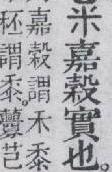 米嘉穀實也。
嘉穀謂禾黍
秠謂黍。虋芑